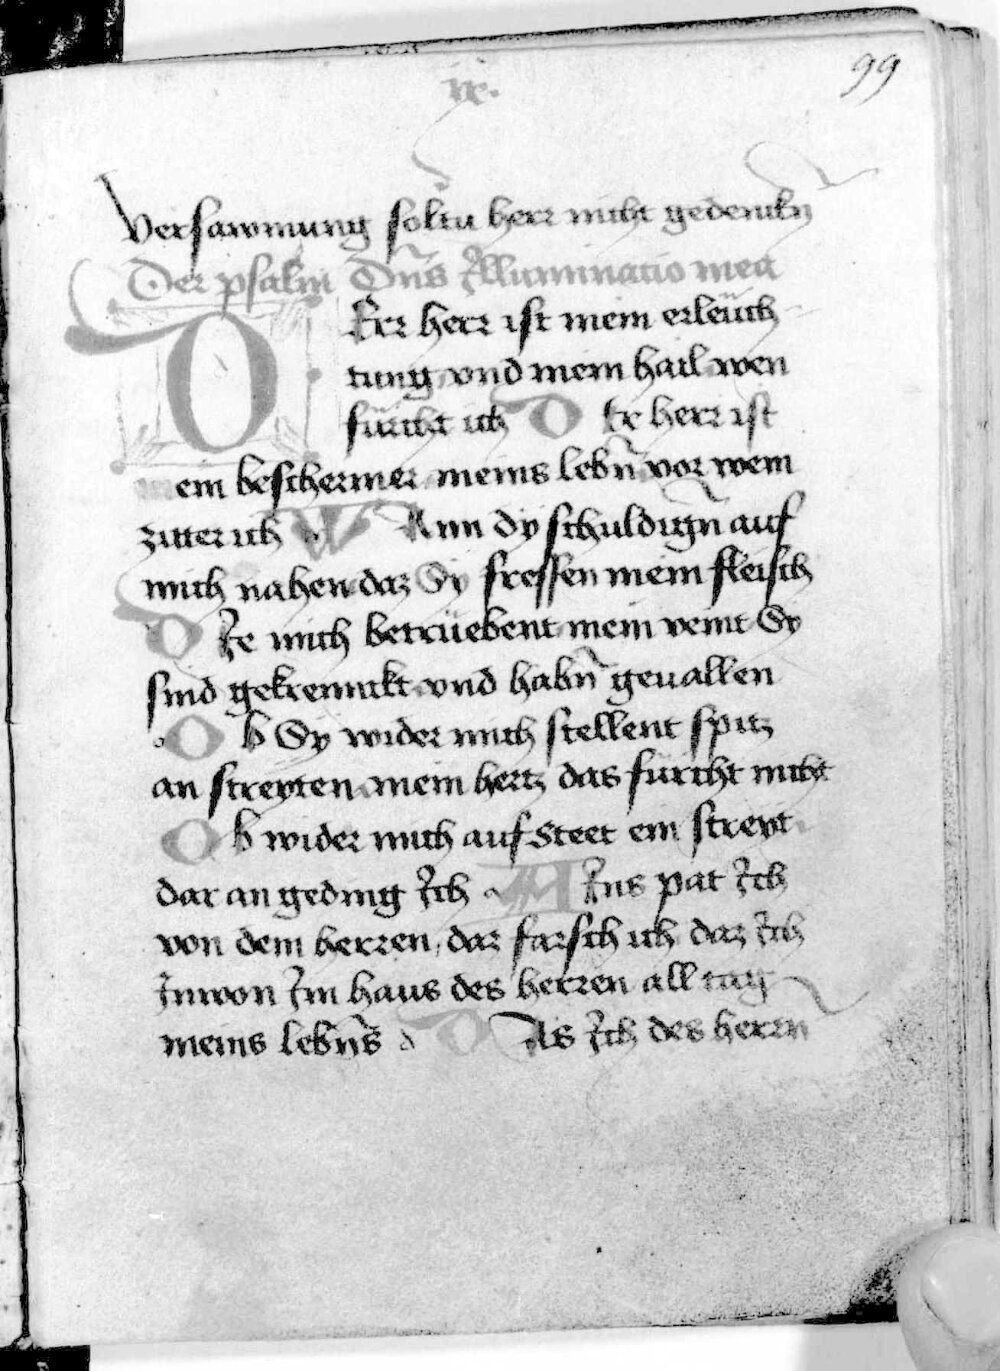 ix.
99
Versawmung soltu herr nicht gedenckn̄
Der psalm Dn̄s Illuminacio mea
DErr herr ist mein erleuch
tung vnd mein hail wen
fürcht ich Der herr ist
mein beschermer meins lebn̄ vor wem
zitter ich WAnn dy schuldign̄ auf
mich nahen daz Sy fressen mein fleisch
DIe mich betrüebent mein veint Sy
sind gekrennckt vnd habn̄ geuallen
Ob Sy wider mich stellent spitz
an streyten mein hertz das fürcht nicht
Ob wider mich auf Steet ein streyt
dar an geding Ich AIns pat Ich
von dem herren, daz farsch ich daz Ich
Inwon Im haus des herren all tag
meins lebn̄s DAs Ich des herrn̄